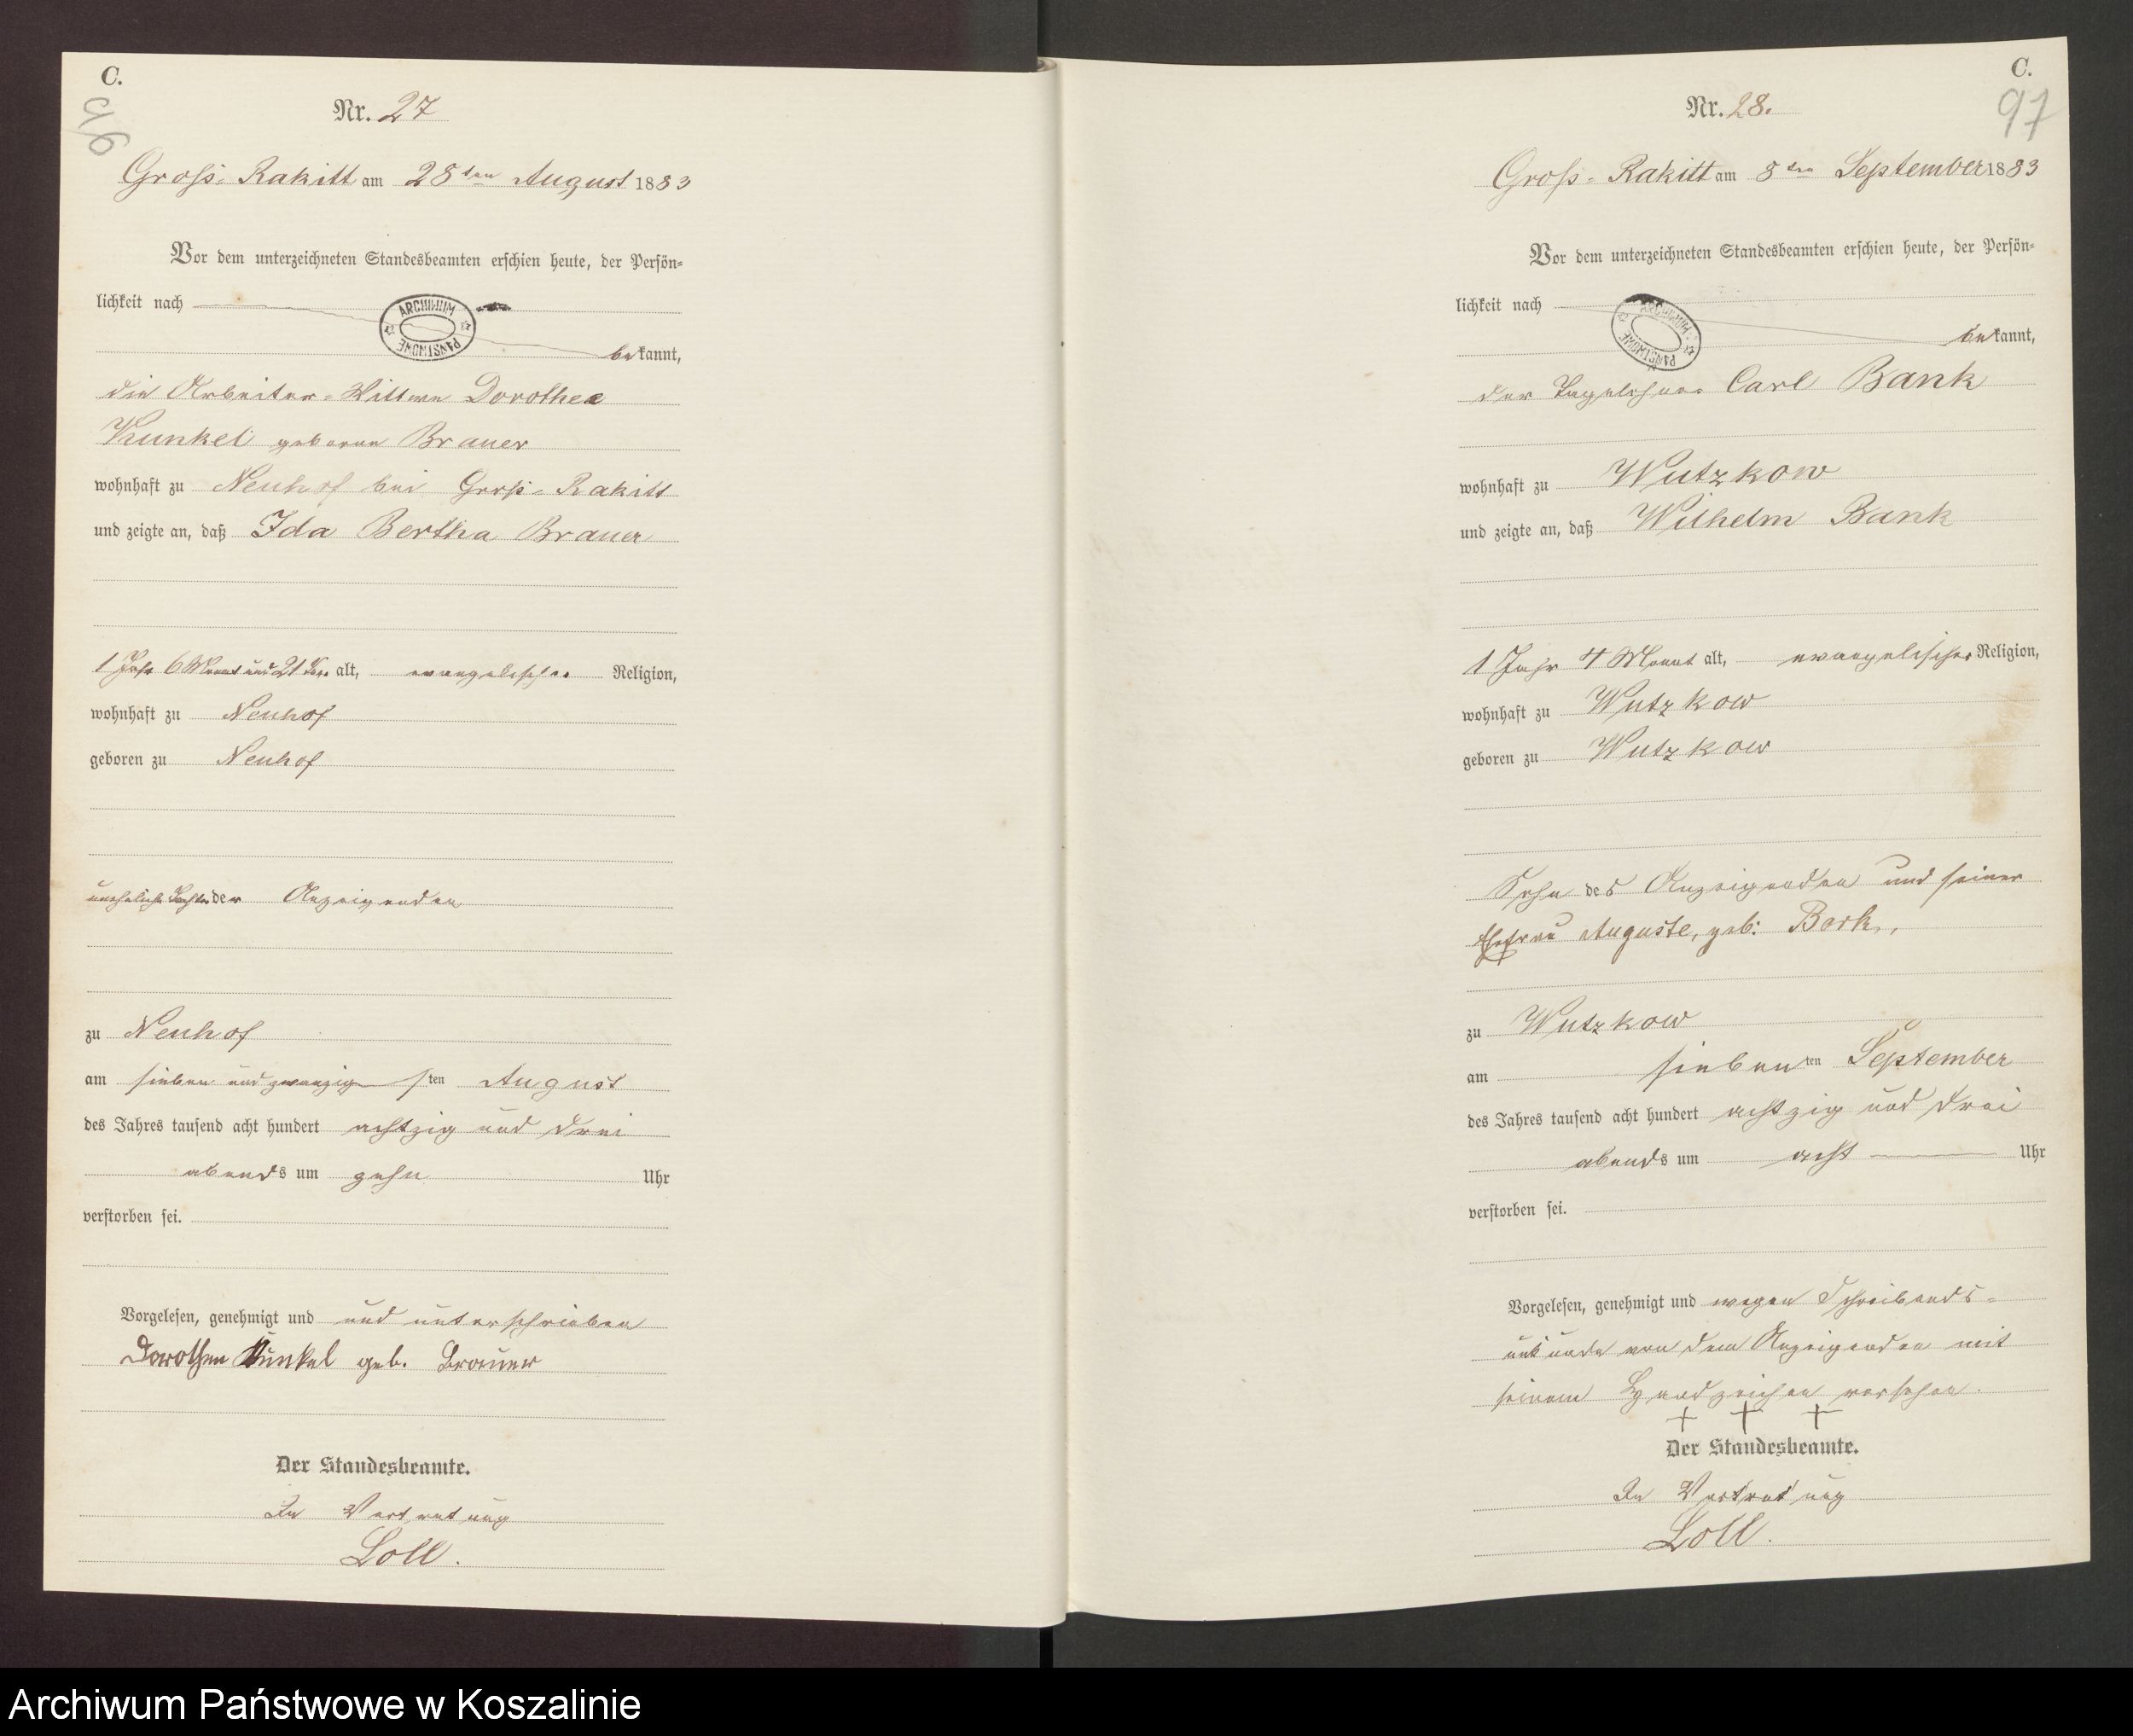 C.
96
Nr. 27
Groß-Rakitt am 28ten August 1883
Vor dem unterzeichneten Standesbeamten erschien heute, der Persön-
lichkeit nach
ARCHIWUM PAŃSTWOWE
bekannt,
die Arbeiter-Wittwe Dorothea
Kunkel geborene Brauer
wohnhaft zu Neuhof bei Groß-Rakitt
und zeigte an, daß Ida Bertha Brauer
1 Jahr 6 Monat und 21 Tag alt, evangelischer Religion,
wohnhaft zu Neuhof
geboren zu Neuhof
uneheliche Tochter der Anzeigenden
zu Neuhof
am sieben und zwanzigsten August
des Jahres tausend acht hundert achtzig und drei
abends um zehn Uhr
verstorben sei.
Vorgelesen, genehmigt und und unterschrieben
Dorothea Kunkel geb. Brauer
Der Standesbeamte.
In Vertretung
Loll.
C.
97
Nr. 28.
Groß-Rakitt am 8ten September 1883
Vor dem unterzeichneten Standesbeamten erschien heute, der Persön-
lichkeit nach
ARCHIWUM PAŃSTWOWE
bekannt,
der Tagelöhner Carl Bank
wohnhaft zu Wutzkow
und zeigte an, daß Wilhelm Bank
1 Jahr 4 Monat alt, evangelischer Religion,
wohnhaft zu Wutzkow
geboren zu Wutzkow
Sohn des Anzeigenden und seiner
Ehefrau Auguste, geb: Bork,
zu Wutzkow
am siebenten September
des Jahres tausend acht hundert achtzig und drei
abends um acht Uhr
verstorben sei.
Vorgelesen, genehmigt und wegen Schreibens-
unkunde von dem Anzeigenden mit
seinem Handzeichen versehen.
+ + +
Der Standesbeamte.
In Vertretung
Loll.
Archiwum Państwowe w Koszalinie